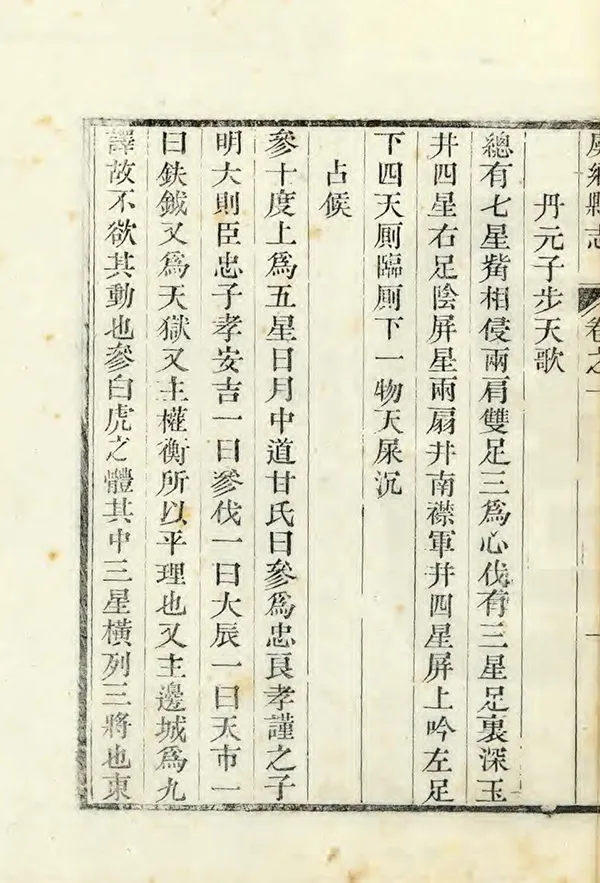 虞鄉縣志 卷之一
丹元子步天歌
總有七星觜相侵兩肩雙足三為心伐有三星足裏深玉
井四星右足陰屏星兩扇井南襟軍井四星屏上吟左足
下四天厠臨厠下一物天屎沉
占候
參十度上為五星日月中道甘氏曰參為忠良孝謹之子
明大則臣忠子孝安吉一曰參伐一曰大辰一曰天市一
曰鈇鉞又為天獄又主權衡所以平理也又主邊城為九
譯故不欲其動也參白虎之體其中三星橫列三將也東